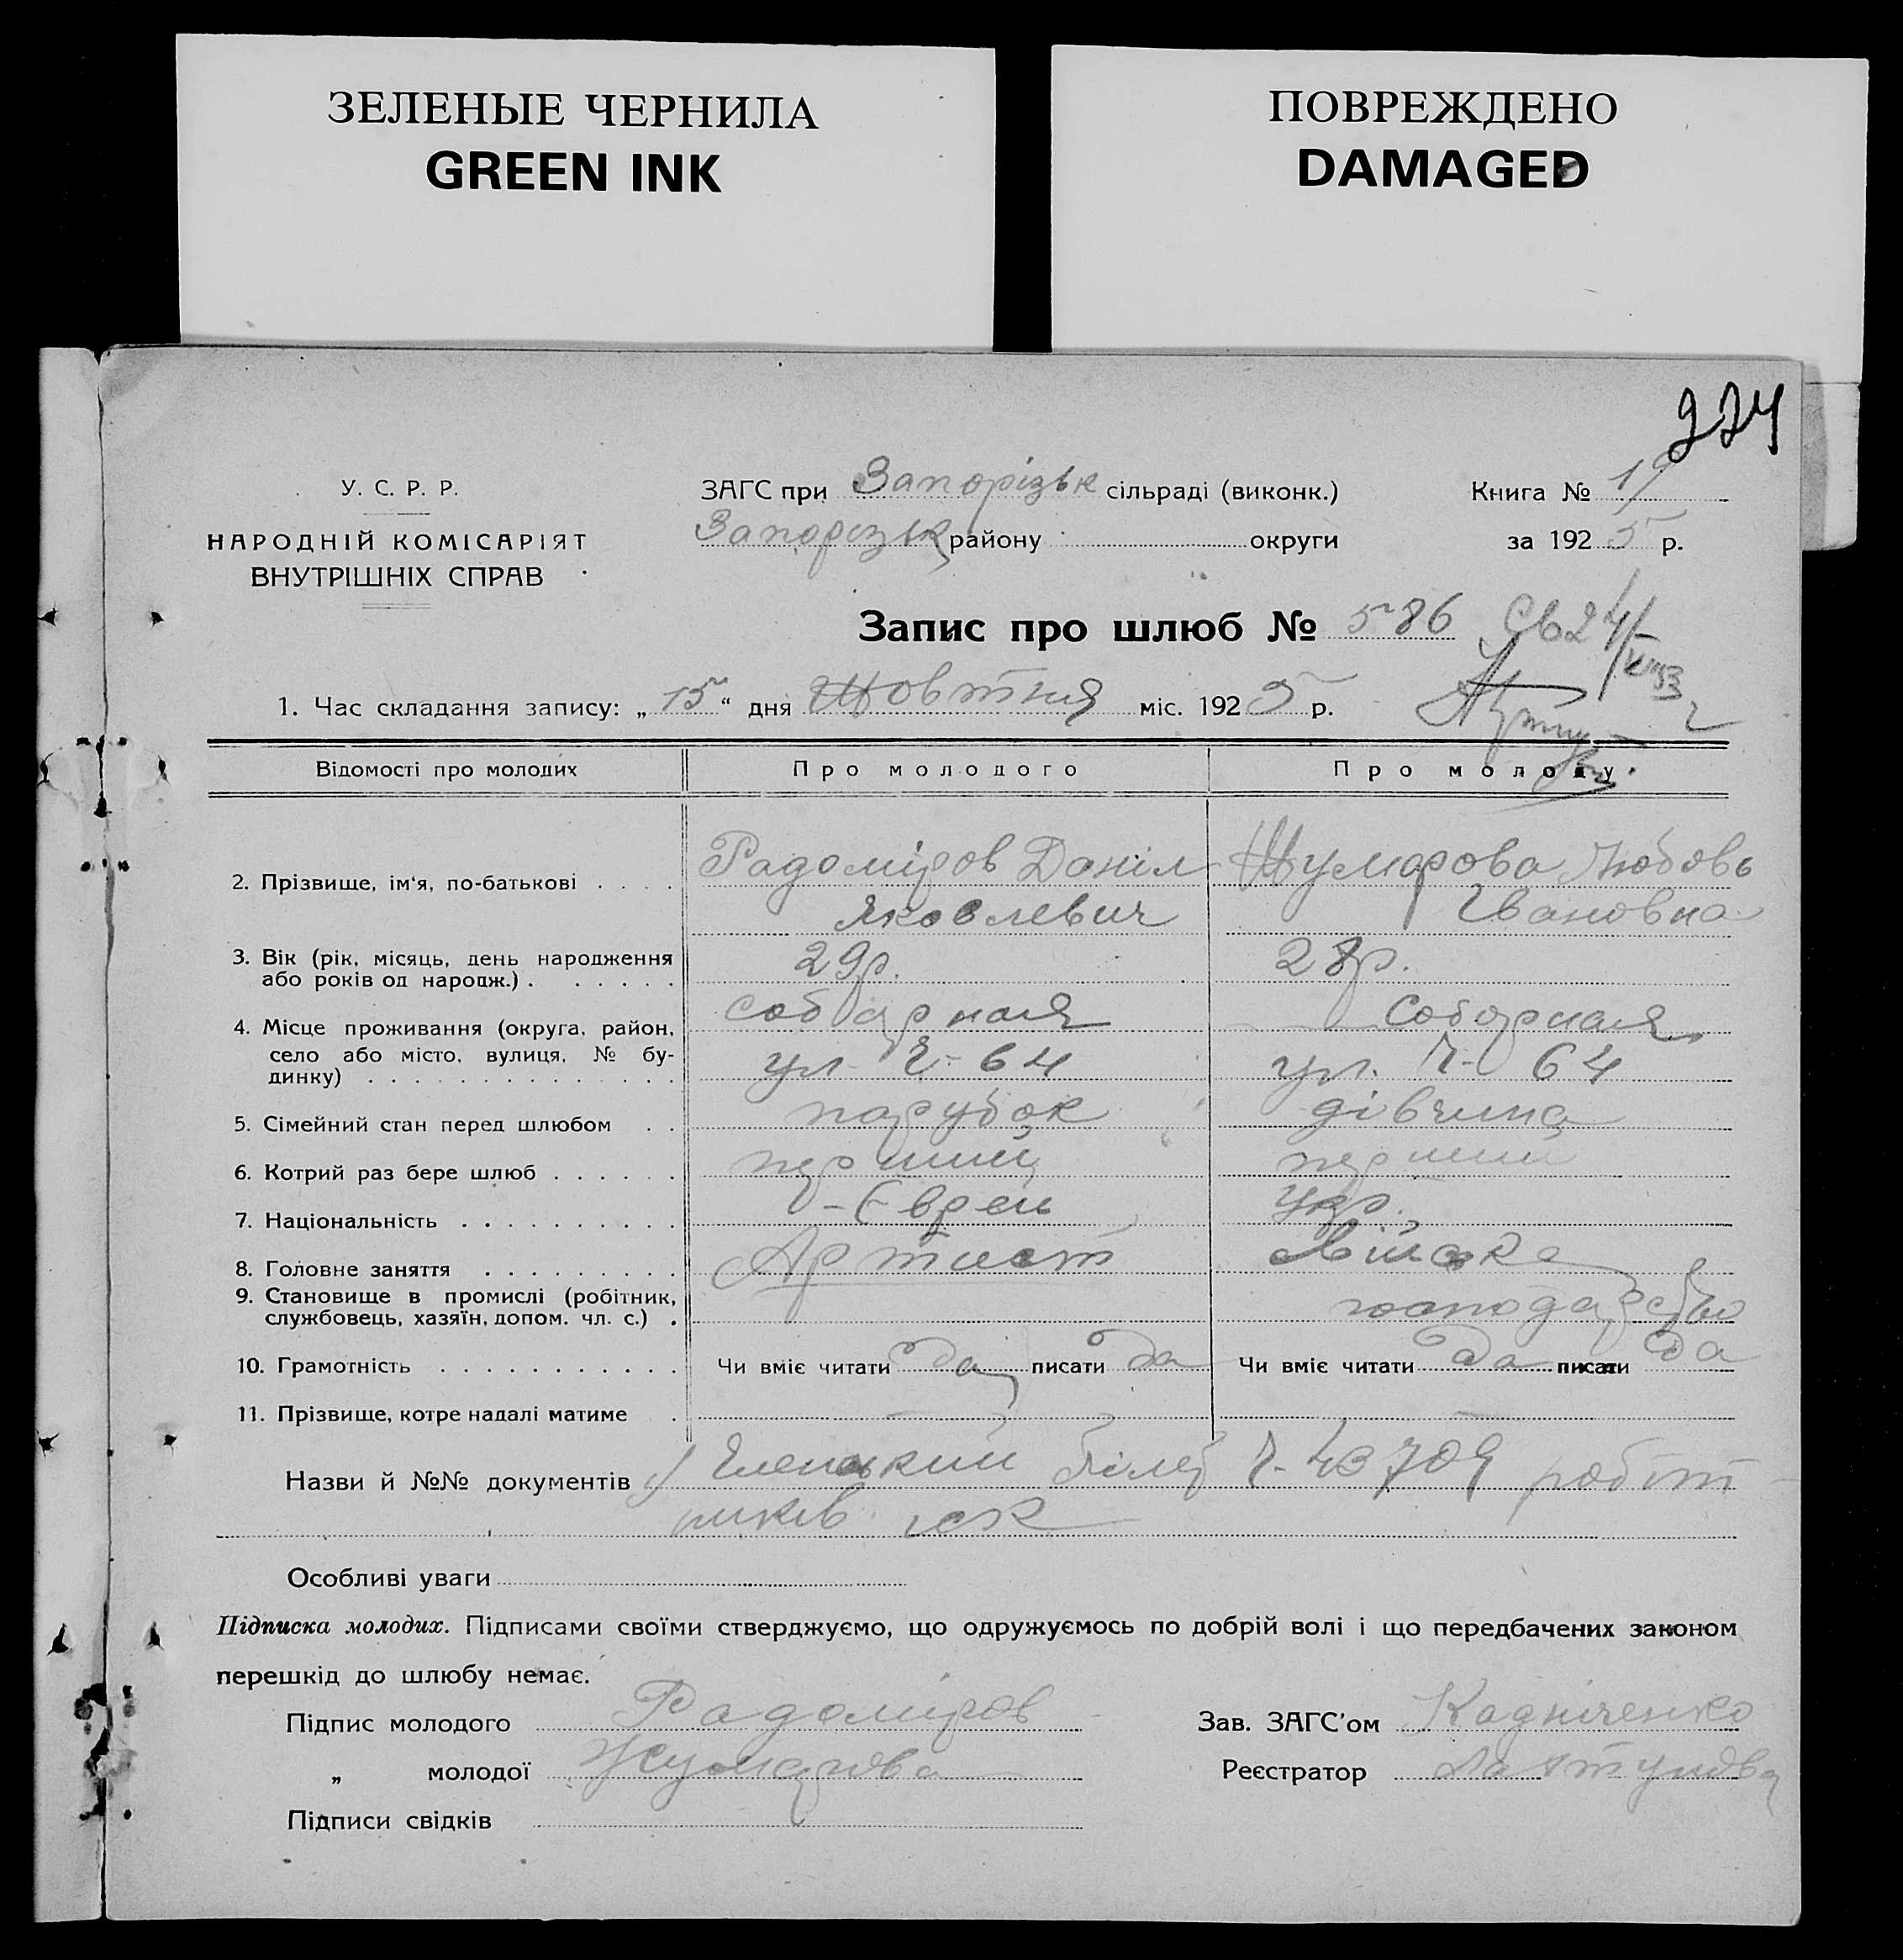 ЗЕЛЕНЫЕ ЧЕРНИЛА
GREEN INK
ПОВРЕЖДЕНО
DAMAGED
224
У. С. Р. Р.
НАРОДНІЙ КОМІСАРІЯТ
ВНУТРІШНІХ СПРАВ
ЗАГС при Запорізьк сільраді (виконк.)
Запорізьк району округи
Книга №
за 1925 р.
Запис про шлюб № 586
1. Час складання запису: „15“ дня Жовтня міс. 1925 р.
Відомості про молодих Про молодого Про молоду
2. Прізвище, ім‘я, по-батькові Радоміров Даніл Любовь
Яковлевич Івановна
3. Вік (рік, місяць, день народження 29р. 28р.
або років од народж.)
4. Місце проживання (округа, район, Соборная Соборная
село або місто, вулиця, № бу- ул. Ч- 64 ул. Ч- 64
динку)
5. Сімейний стан перед шлюбом парубок дівчина
6. Котрий раз бере шлюб перший перший
7. Національність Єврей укр.
8. Головне заняття Артист
9. Становище в промислі (робітник, господарство
службовець, хазяїн, допом. чл. с.)
10. Грамотність Чи вміє читати да писати да Чи вміє читати да писати да
11. Прізвище, котре надалі матиме
Назви й №№ документів Членський білет Ч- 43709 робіт-
ників
Особливі уваги
Підписка молодих. Підписами своїми стверджуємо, що одружуємось по добрій волі і що передбачених законом
перешкід до шлюбу немає.
Підпис молодого Радоміров
Зав. ЗАГС’ом
„ молодої
Реєстратор
Підписи свідків